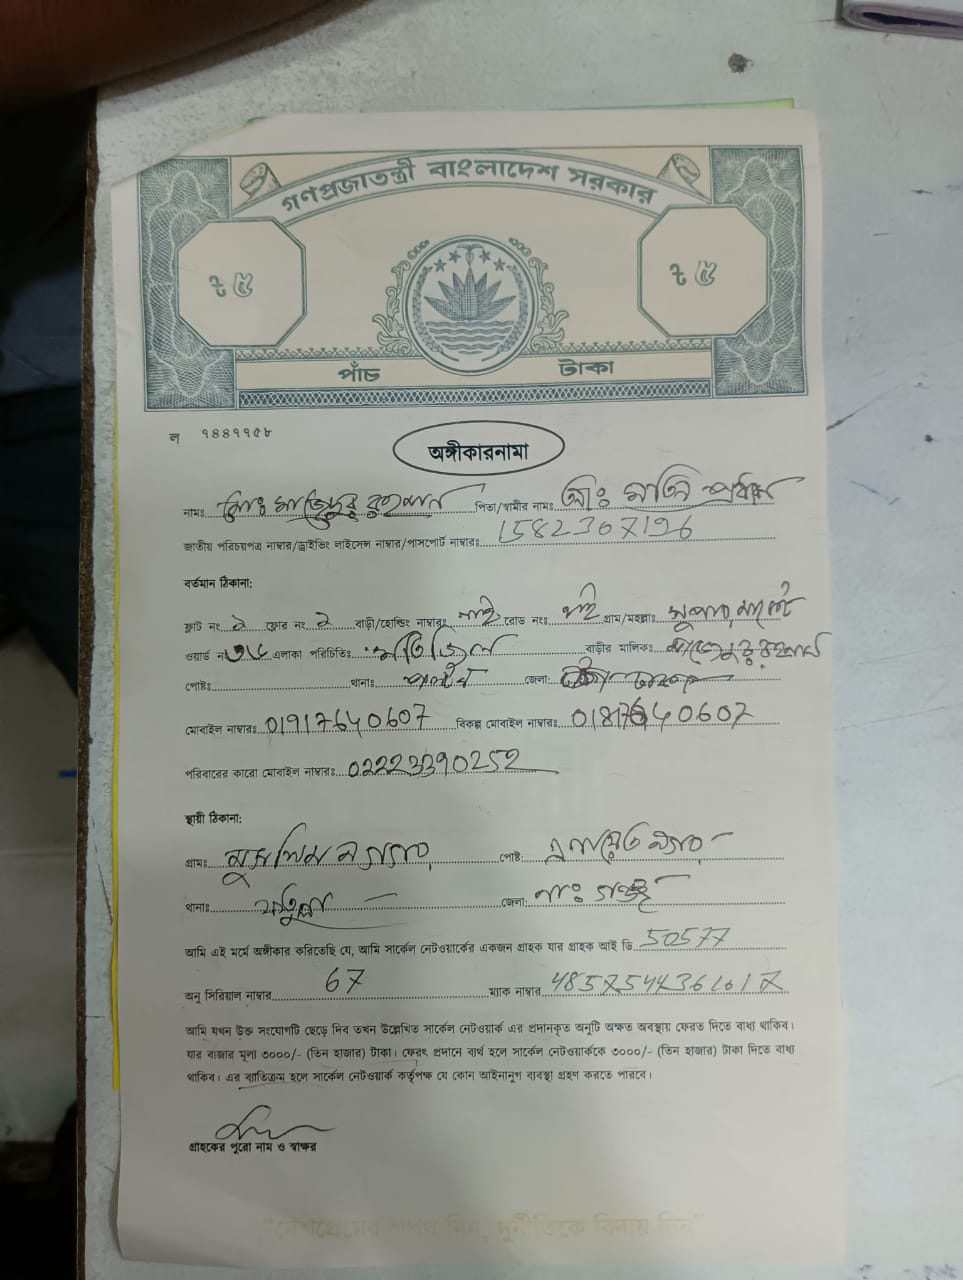 গণপ্রজাতন্ত্রী বাংলাদেশ সরকার
৳ ৫ ৳ ৫
পাঁচ টাকা
ল ৭৪৪৭৭৫৮
অঙ্গীকারনামা
নামঃ মোঃ রহমান পিতা/স্বামীর নামঃ মোঃ
জাতীয় পরিচয়পত্র নাম্বার/ড্রাইভিং লাইসেন্স নাম্বার/পাসপোর্ট নাম্বারঃ 1582307196
বর্তমান ঠিকানা:
ফ্লাট নং ২ ফ্লোর নং ২ বাড়ী/হোল্ডিং নাম্বারঃ নাই রোড নংঃ নাই গ্রাম/মহল্লাঃ
ওয়ার্ড নং এলাকা পরিচিতিঃ মতিঝিল বাড়ীর মালিকঃ
পোষ্টঃ থানাঃ পল্টন জেলা: ঢাকা
মোবাইল নাম্বারঃ 01917640607 বিকল্প মোবাইল নাম্বারঃ
পরিবারের কারো মোবাইল নাম্বারঃ 02223390252
স্থায়ী ঠিকানা:
গ্রামঃ মুসলিম নগর পোষ্ট: এনায়েত নগর
থানাঃ ফতুল্লা জেলা: নাঃ গঞ্জ
আমি এই মর্মে অঙ্গীকার করিতেছি যে, আমি সার্কেল নেটওয়ার্কের একজন গ্রাহক যার গ্রাহক আই ডি 50577
অনু সিরিয়াল নাম্বার 67 ম্যাক নাম্বার
আমি যখন উক্ত সংযোগটি ছেড়ে দিব তখন উল্লেখিত সার্কেল নেটওয়ার্ক এর প্রদানকৃত অনুটি অক্ষত অবস্থায় ফেরত দিতে বাধ্য থাকিব।
যার বাজার মূল্য ৩০০০/- (তিন হাজার) টাকা। ফেরৎ প্রদানে ব্যর্থ হলে সার্কেল নেটওয়ার্ককে ৩০০০/- (তিন হাজার) টাকা দিতে বাধ্য
থাকিব। এর ব্যতিক্রম হলে সার্কেল নেটওয়ার্ক কর্তৃপক্ষ যে কোন আইনানুগ ব্যবস্থা গ্রহণ করতে পারবে।
গ্রাহকের পুরো নাম ও স্বাক্ষর
"দেশপ্রেমের শপথ নিন, দুর্নীতিকে বিদায় দিন"